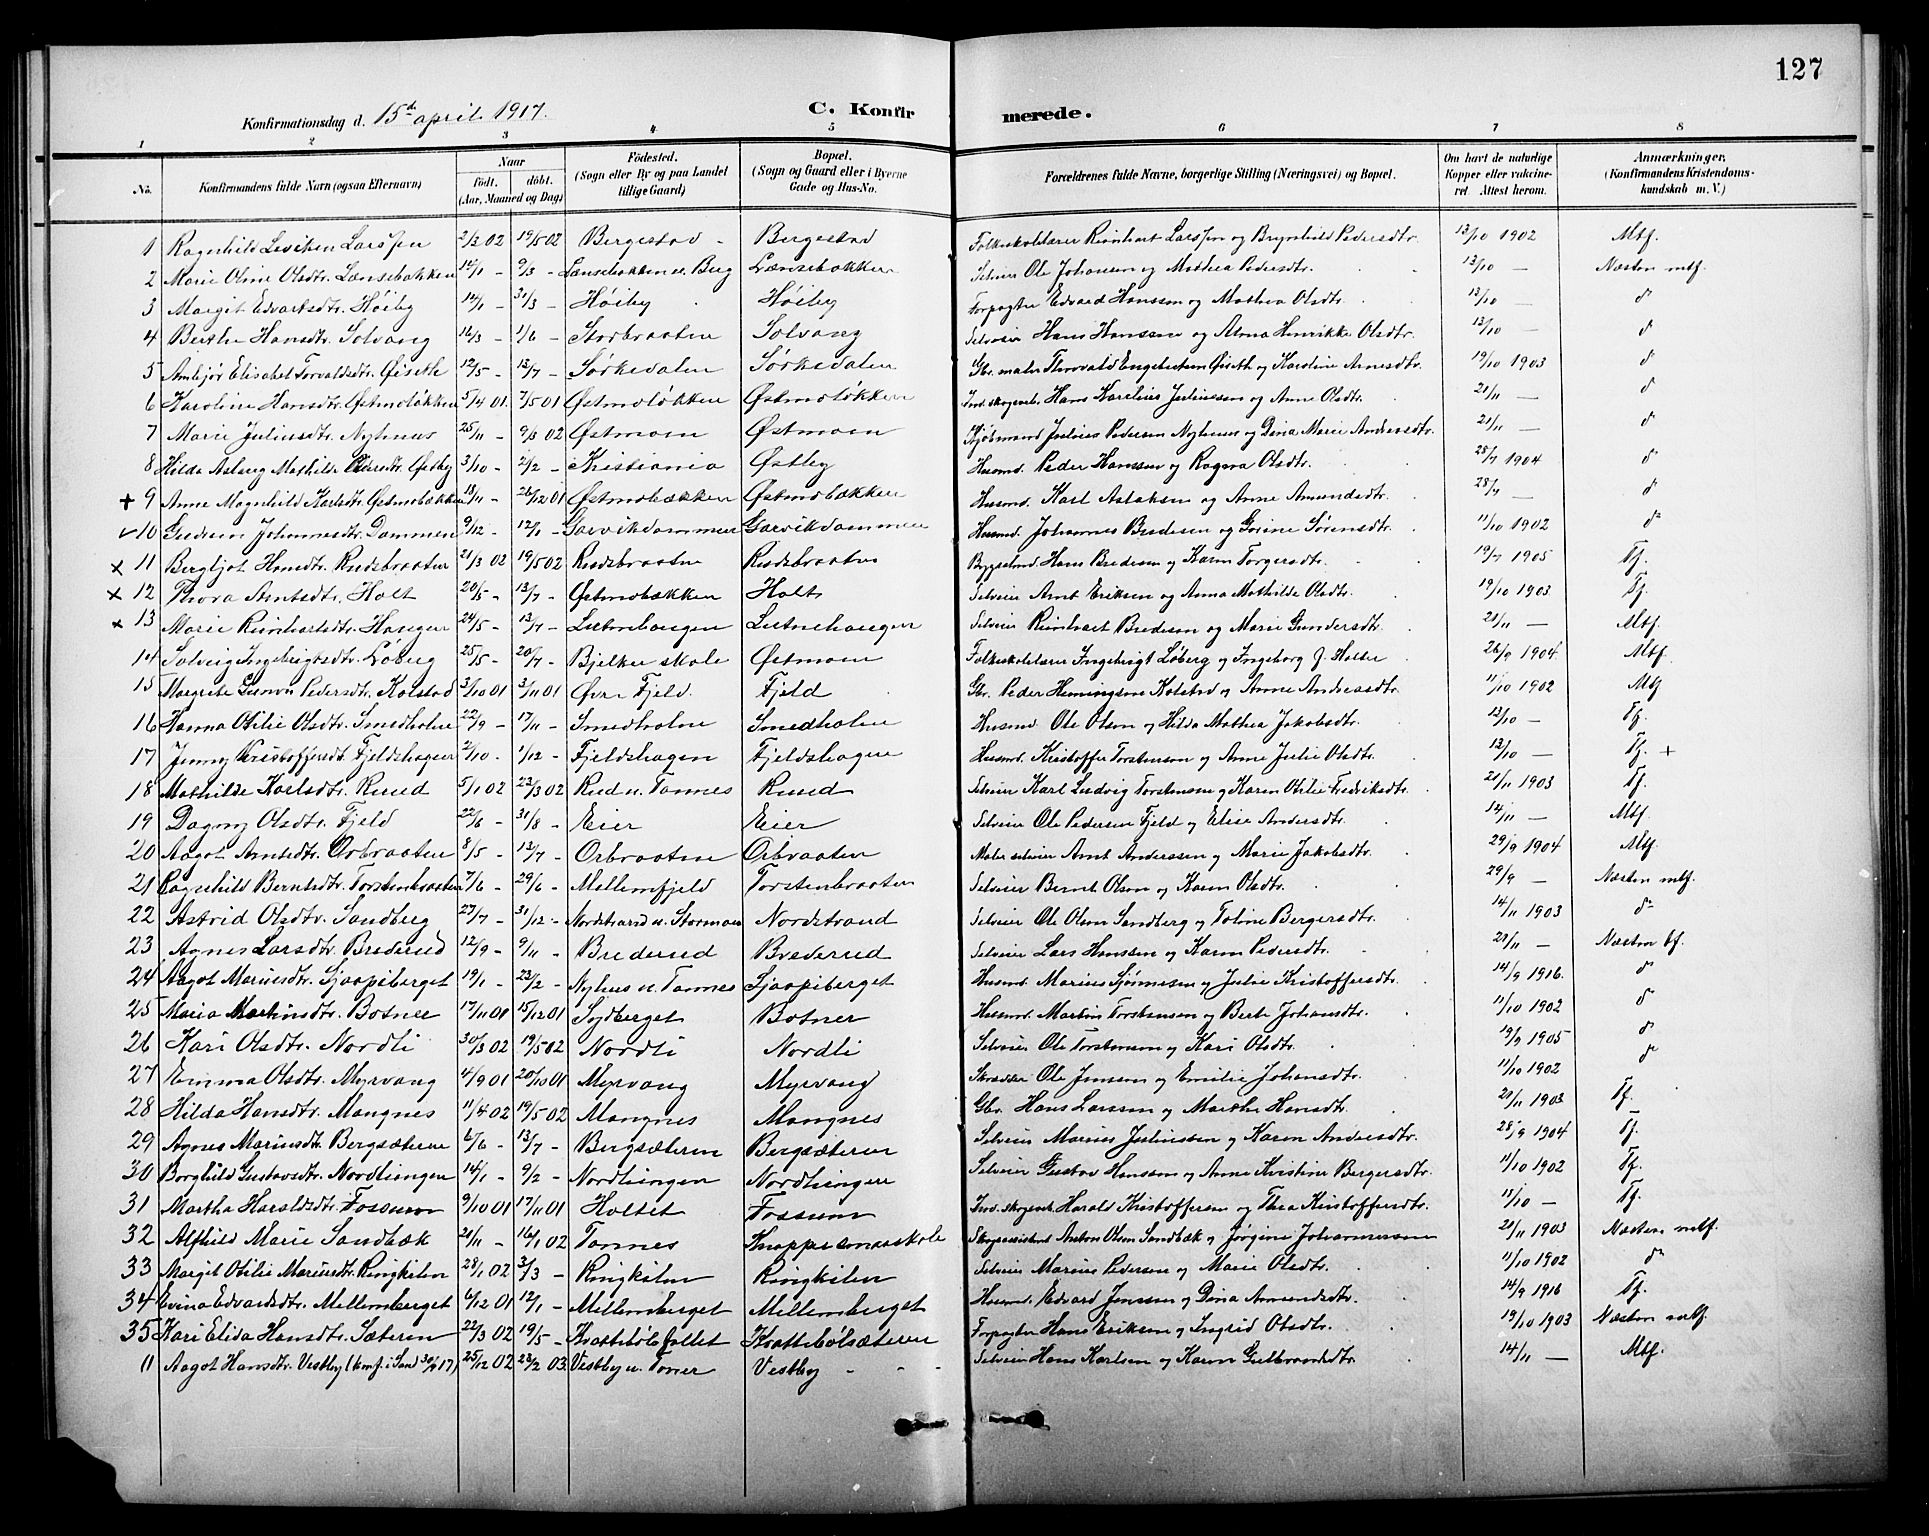 127
Konfirmationsdag d. 15de april 1917.
C. Konfirmerede.
1 2 3 4 5 6 7 8
No. Konfirmandens fulde Navn (ogsaa Efternavn) Naar født. døbt. (Aar, Maaned og Dag) Fødested. (Sogn eller By og paa Landet tillige Gaard) Bopæl. (Sogn og Gaard eller i Byerne Gade og Hus-No. Forældrenes fulde Navne, borgerlige Stilling (Næringsvei) og Bopæl. Om havt de naturlige Kopper eller vaccineret Attest herom. Anmærkninger. (Konfirmandens Kristendomskundskab m. V.)
1 Ragnhild Larssen 2/2 02 19/5 02 Bergestad Bergestad Folkeskolelærer Reinhart Larssen og Brynhild Pedersdtr. 13/10 1902 Mtf.
2 Marie Oline Olsdtr. Lænsebakken 14/1 - 9/3 - Lænsebakken u. Berg Lænsebakken Selveier Ole Johansen og Mathea Pedersdtr. 13/10 — Næsten mtf.
3 Margit Edvartsdtr. Høiby 14/1 - 31/3 - Høiby Høiby Forpagter Edvard Hanssen og Mathea Olsdtr. 13/10 — do
4 Berthe Hansdtr. Solvang 16/3 - 1/6 - Storbraaten Solvang Selveier Hans Hanssen og Anna Henrikke Olsdtr. 13/10 — do
5 Elisabet Torvaldsdtr. Øiseth 12/5 - 13/7 - Sørkedalen Sørkedalen Gbr. maler Thorvald Engebretsen Øiseth og Karoline Arnesdtr. 19/10 1903 do
6 Karoline Hansdtr. Østmoløkken 5/4 01. 7/5 01 Østmoløkken Østmoløkken Hans Karelius Juliussen og Anne Olsdtr. 21/11 — do
7 Marie Juliusdtr. Nyhuus 25/11 - 9/3 02 Østmoen Østmoen Kjøbmand Julius Pedersen Nyhuus og Dina Marie Andersdtr. 21/11 — do
8 Hilda Aslaug Mathilde Pedersdtr. Østby 3/10 - 2/2 - Kristiania Østby Husmd. Peder Hanssen og Ragna Olsdtr. 28/7 1904 do
+ 9 Anne Magnhild Karlsdtr. Østmobakken 13/11 - 26/12 01 Østmobækken Østmobækken Husmd. Karl Aslaksen og Anne Amundsdtr. 28/7 — do
10 Gudrun Johannesdtr. Dammen 9/12 - 12/1 - Garvikdammen Garvikdammen Husmd. Johannes Bredesen og Gorine Sørensdtr. 11/10 1902 do
x 11 Bergljot Hansdtr. Rudsbraaten 21/3 02 19/5 02 Rudsbraaten Rudsbraaten Bygselmd. Hans Bredesen og Karen Torgersdtr. 19/7 1905 Tf.
x 12 Thora Arntsdtr. Holt 20/5 - 13/7 - Østmobækken Holt Selveier Arnt Eriksen og Anna Mathilde Olsdtr. 19/10 1903 Tf.
x 13 Marie Reinhartsdtr. Haugen 24/5 - 13/7 - Lutnehaugen Lutnehaugen Selveier Reinhart Bredesen og Marie Gundersdtr. 21/11 — Mtf.
14 Solveig Ingebrigtsdtr. Løberg 25/5 - 20/7 - Bjelker skole Østmoen Folkeskolelærer Ingebrigt Løberg og Ingeborg J. Holter 26/9 1904. Mtf.
15 Margrete Pedersdtr. Kolstad 3/10 01 3/11 01 Øvre Fjeld. Fjeld Gbr. Peder Hemingsen Kolstad og Anne Andreasdtr. 11/10 1902 Mtf
16 Hanna Otilie Olsdtr. Smedholen 22/9 - 17/11 - Smedholen Smedholen Husmd. Ole Olsen og Hilda Mathea Jakobsdtr. 13/10 — Tf.
17 Jenny Kristoffersdt. Fjeldshagen 2/10 - 1/12 - Fjeldshagen Fjeldshagen Husmd. Kristoffer Torstensen og Anne Julie Olsdtr. 13/10 — Tf. +
18 Mathilde Karlsdtr. Ruud 5/1 02 23/3 02 Rud u. Tannes Ruud Selveier Karl Ludvig Torstensen og Karen Otilie Fredriksdtr. 21/11 1903 Tf.
19 Dagny Olsdtr. Fjeld 22/6 - 31/8 - Eier Eier Selveier Ole Pedersen Fjeld og Elise Andersdtr. 14/11 — Mtf.
20 Aagot Arntsdtr. Orbraaten 8/5 - 13/7 - Orbraaten Orbraaten Maler selveier Arnt Anderssen og Marie Jakobsdtr. 29/9 1904 Mtf.
21 Ragnhild Berntsdtr. Torstenbraaten 7/6 - 29/6 - Mellemfjeld Torstenbraaten Selveier Bernt Olsen og Karen Olsdtr. 29/9 — Næsten mtf.
22 Astrid Olsdtr. Sandberg 27/7 - 31/12 - Nordstrand u. Stormoen Nordstrand Selveier Ole Olsen Sandberg og Toline Bergersdtr. 14/11 1903 do
23 Agnes Larsdtr. Brederud 12/9 - 9/11 - Brederud Brederud Selveier Lars Hanssen og Karen Pedersdtr. 21/11 — Næsten tf.
24 Aagot Mariusdtr. Sjaapiberget 19/1 - 23/2 - Nyhus u. Tannes Sjaapiberget Husmd. Marius Sjørnesen og Julie Kristoffersdtr. 14/9 1916. do
25 Maria Martinsdtr. Botner 17/11 01 15/12 01 Sydberget Botner Husmd. Martin Torstensen og Berte Johansdtr. 11/10 1902 do
26 Kari Olsdtr. Nordli 30/3 02 19/5 02 Nordli Nordli Selveier Ole Torstensen og Kari Olsdtr. 19/9 1905 do
27 Emma Olsdtr. Myrvang 4/9 01 20/10 01 Myrvang Myrvang Skrædder Ole Jenssen og Emilie Johansdtr. 11/10 1902 do
28 Hilda Hansdtr. Mangnes 11/4 02 19/5 02 Mangnes Mangnes Gbr. Hans Larssen og Marthe Hansdtr. 21/11 1903 Tf.
29 Agnes Mariusdt. Bergsæteren 6/6 - 13/7 - Bergsæteren Bergsæteren Selveier Marius Juliussen og Karen Andersdtr. 28/9 1904 Tf.
30 Borghild Gustavsdtr. Nordhingen 14/1 - 9/2 - Nordhingen Nordhingen Selveier Gustav Hanssen og Anne Kristine Bergersdtr. 11/10 1902 Tf.
31 Martha Haraldsdtr. Fossum 9/10 01 17/11 01 Holtet Fossum Harald Kristoffersen og Thea Kristoffersdtr. 13/10 — Tf.
32 Alfhild Marie Sandbæk 21/11 - 16/1 02 Tannes Skogassistent Anton Olsen Sandbæk og Jørgine Johannessen 21/11 1903 Næsten mtf.
33 Margit Otilie Mariusdtr. Ringkilen 28/1 02 31/3 - Ringkilen Ringkilen Selveier Marius Pedersen og Marie Olsdtr. 11/10 1902 do
34 Evina Edvardsdtr. Mellemberget 6/12 01 12/1 - Mellemberget Mellemberget Husmd. Edvard Jenssen og Dina Amundsdtr. 14/9 1916 Tf.
35 Kari Elida Hansdtr. Sæteren 22/3 02 19/5 - Kvattebølsæteren Forpagter Hans Eriksen og Ingrid Olsdtr. 19/10 1903 Næsten mtf.
Aagot Hansdtr. Vestby (konf. i Sand 30/9 17) 25/12 02 23/2 03 Vestby u. Tanner Vestby - - - Selveier Hans Karlsen og Karen Gulbrandsdtr. 14/11 — Mtf.